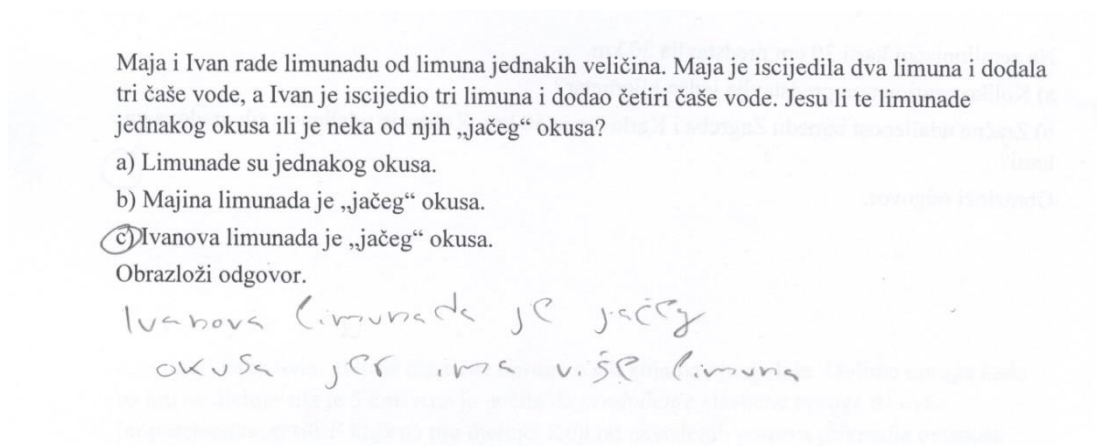 Maja i Ivan rade limunadu od limuna jednakih veličina. Maja je iscijedila dva limuna i dodala
tri čaše vode, a Ivan je iscijedio tri limuna i dodao četiri čaše vode. Jesu li te limunade
jednakog okusa ili je neka od njih „jačeg“ okusa?
a) Limunade su jednakog okusa.
b) Majina limunada je „jačeg“ okusa.
c) Ivanova limunada je „jačeg“ okusa.
Obrazloži odgovor.
Ivanova limunada je jačeg
okusa jer ima više limuna